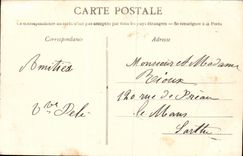 CARTE POSTALE
La correspondance au recto n'est pas acceptée par tous les pays étrangers — Se renseigner à la Poste
Correspondance
Adresse
Monsieur et Madame
Amitiés
120 rue de
le Mans
Sarthe